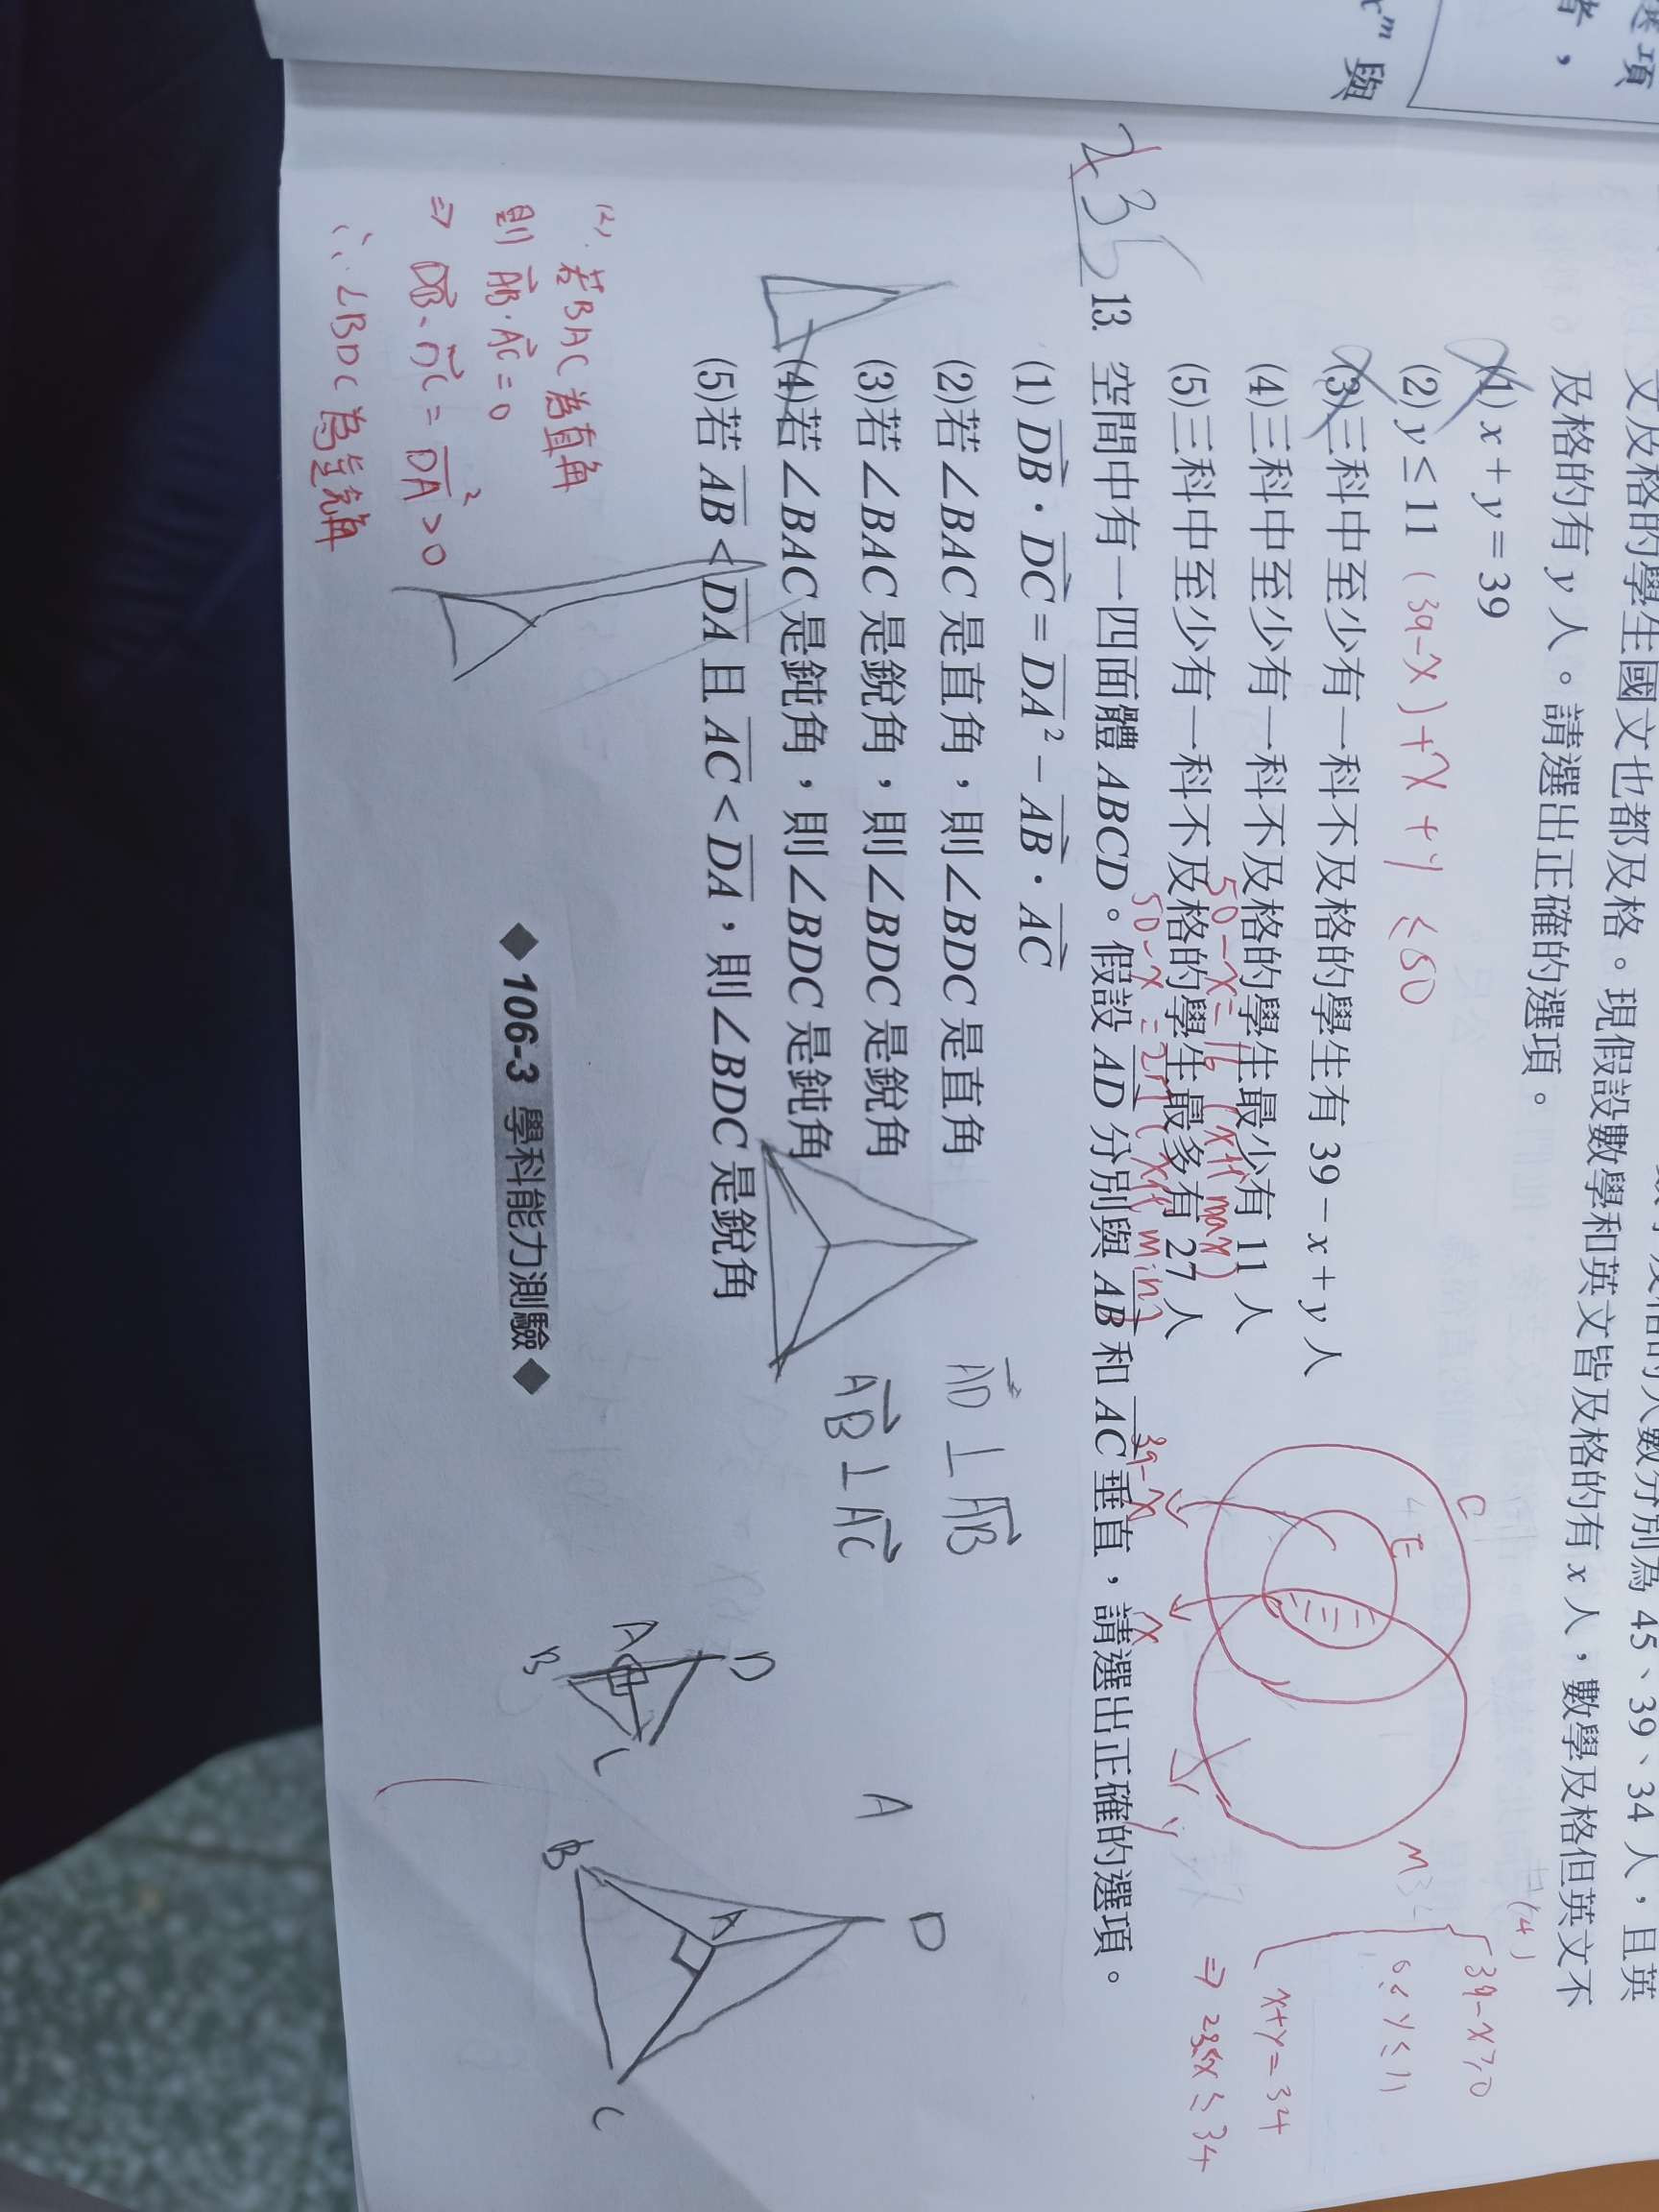 選項
者，
xᵐ 與
文及格的學生國文也都及格。現假設數學和英文皆及格的有 x 人，數學及格但英文不
及格的有 y 人。請選出正確的選項。
(1) x + y = 39
(2) y ≤ 11 (39-x)+x+y ≤50
(3)三科中至少有一科不及格的學生有 39 − x + y 人
(4)三科中至少有一科不及格的學生最少有 11 人
50-x=16 (x代max)
(5)三科中至少有一科不及格的學生最多有 27 人
C
E
M
39-x
x
y
(4)
39-x≥0
0≤y≤11
x+y=34
⇒ 23≤x≤34
235
13. 空間中有一四面體 ABCD。假設 AD 分別與 AB 和 AC 垂直，請選出正確的選項。
(1) DB · DC = DA² − AB · AC
(2)若 ∠BAC 是直角，則 ∠BDC 是直角
(3)若 ∠BAC 是銳角，則 ∠BDC 是銳角
(4)若 ∠BAC 是鈍角，則 ∠BDC 是鈍角
(5)若 AB < DA 且 AC < DA，則 ∠BDC 是銳角
AD ⊥ AB
AB ⊥ AC
A
D
B
A
C
D
A
B
C
◆ 106-3 學科能力測驗 ◆
(2). 若BAC 為直角
則 AB · AC = 0
⇒ DB · DC = DA² > 0
∴ ∠BDC 為銳角